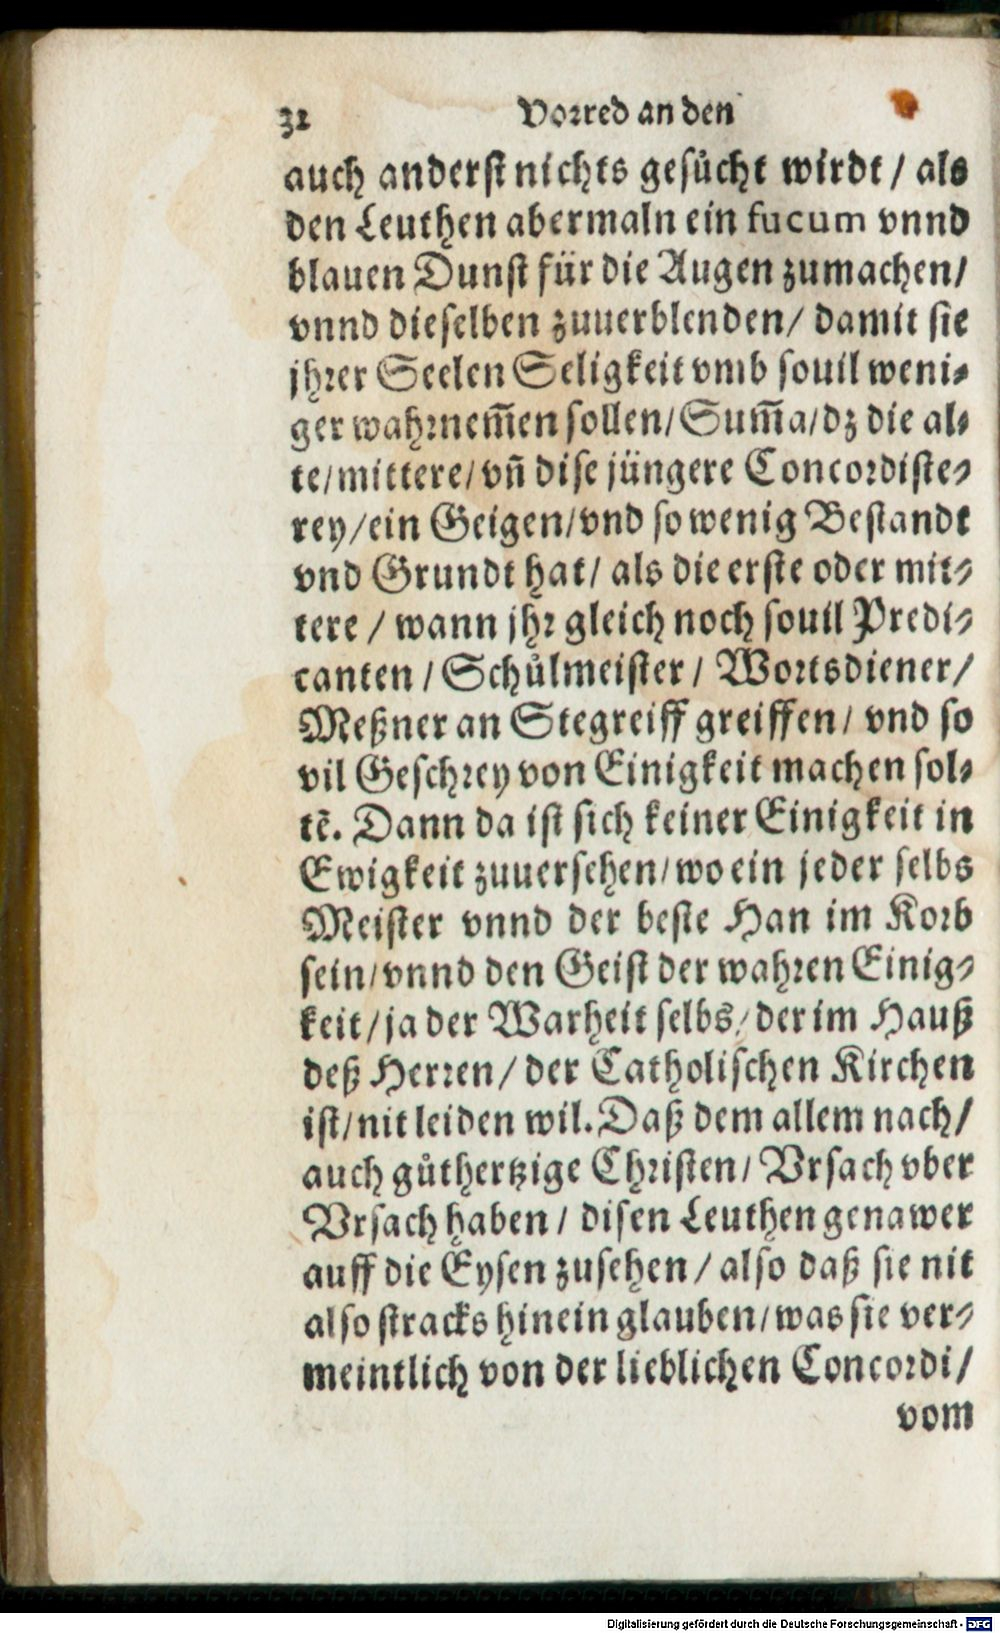 32 Vorred an den
auch anderst nichts gesůcht wirdt / als
den Leuthen abermaln ein fucum vnnd
blauen Dunst für die Augen zumachen/
vnnd dieselben zuuerblenden/ damit sie
jhrer Seelen Seligkeit vmb souil weni-
ger wahrnem̃en sollen/ Sum̃a/ dz die al-
te/ mittere/ vñ dise jüngere Concordiste-
rey/ ein Geigen/ vnd so wenig Bestandt
vnd Grundt hat/ als die erste oder mit-
tere / wann jhr gleich noch souil Predi-
canten / Schůlmeister / Wortsdiener/
Meßner an Stegreiff greiffen/ vnd so
vil Geschrey von Einigkeit machen sol-
tẽ. Dann da ist sich keiner Einigkeit in
Ewigkeit zuuersehen/ wo ein jeder selbs
Meister vnnd der beste Han im Korb
sein/ vnnd den Geist der wahren Einig-
keit/ ja der Warheit selbs/ der im Hauß
deß Herren/ der Catholischen Kirchen
ist/ nit leiden wil. Daß dem allem nach/
auch gůthertzige Christen/ Vrsach vber
Vrsach haben / disen Leuthen genawer
auff die Eysen zusehen / also daß sie nit
also stracks hinein glauben/ was sie ver-
meintlich von der lieblichen Concordi/
vom
Digitalisierung gefördert durch die Deutsche Forschungsgemeinschaft - DFG